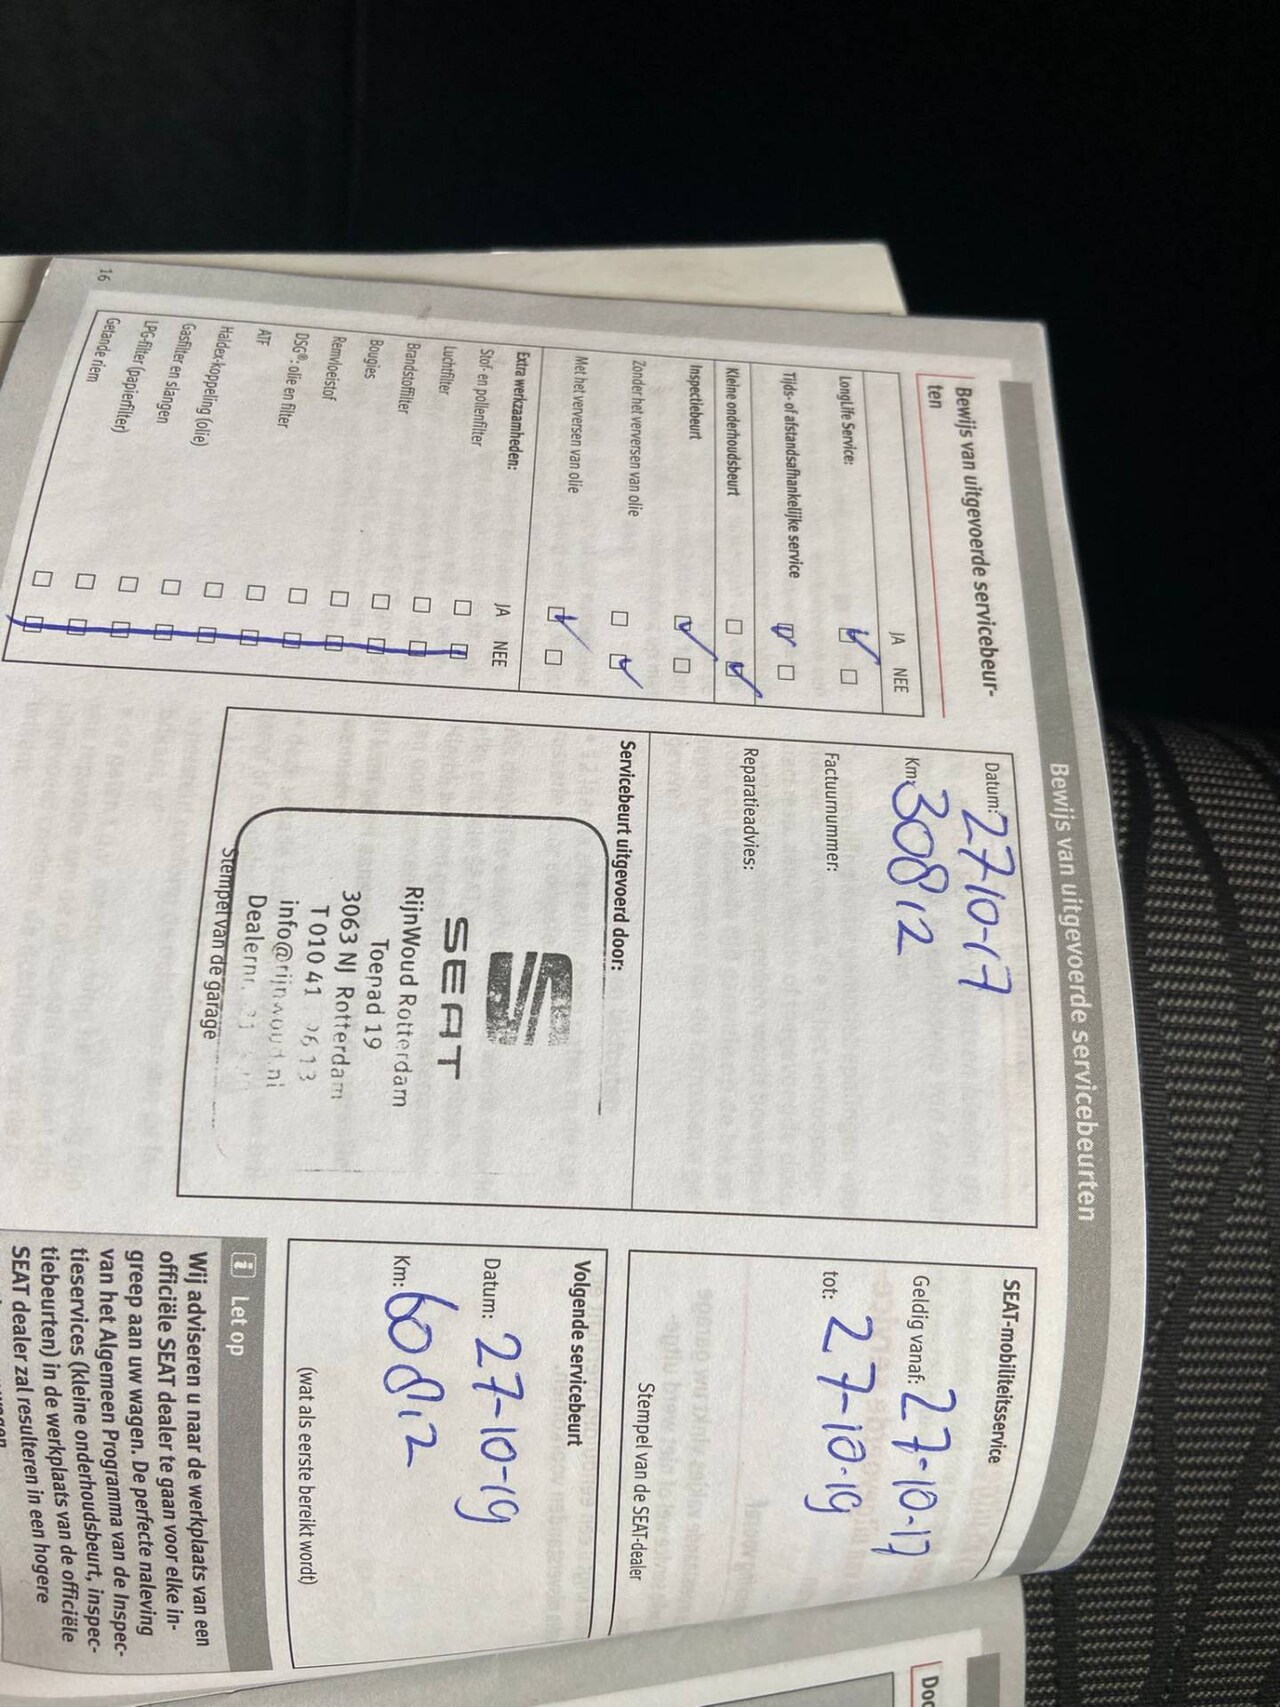 Bewijs van uitgevoerde servicebeurten
Bewijs van uitgevoerde servicebeur-
ten
JA NEE
LongLife Service:
Tijds- of afstandsafhankelijke service
Kleine onderhoudsbeurt
Inspectiebeurt
Zonder het verversen van olie
Met het verversen van olie
Extra werkzaamheden:
JA NEE
Stof- en pollenfilter
Luchtfilter
Brandstoffilter
Bougies
Remvloeistof
DSG®: olie en filter
ATF
Haldex-koppeling (olie)
Gasfilter en slangen
LPG-filter (papierfilter)
Getande riem
16
Datum: 27-10-17
Km: 30812
Factuurnummer:
Reparatieadvies:
Servicebeurt uitgevoerd door:
SEAT
RijnWoud Rotterdam
Toepad 19
3063 NJ Rotterdam
T 010 41 26 13
info@rijnwoud.nl
Dealernr.
Stempel van de garage
SEAT-mobiliteitsservice
Geldig vanaf: 27-10-17
tot: 27-10-19
Stempel van de SEAT-dealer
Volgende servicebeurt
Datum: 27-10-19
Km: 60812
(wat als eerste bereikt wordt)
i Let op
Wij adviseren u naar de werkplaats van een
officiële SEAT dealer te gaan voor elke in-
greep aan uw wagen. De perfecte naleving
van het Algemeen Programma van de Inspec-
tieservices (kleine onderhoudsbeurt, inspec-
tiebeurten) in de werkplaats van de officiële
SEAT dealer zal resulteren in een hogere
Doc